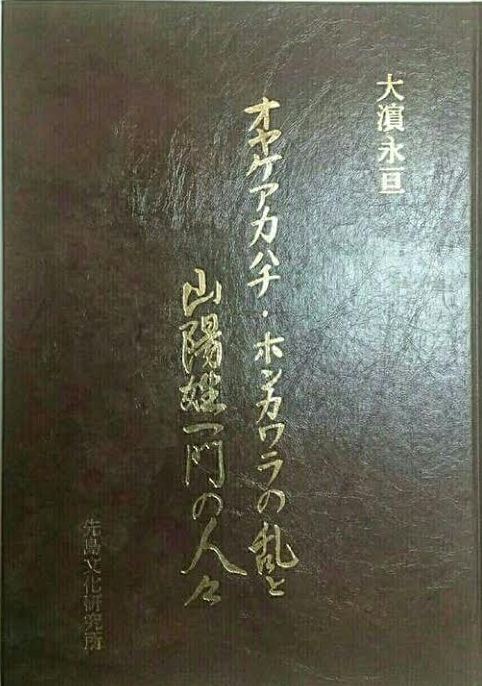 大濵永亘
オヤケアカハチ・ホンカワラの乱と
山陽姓一門の人々
先島文化研究所